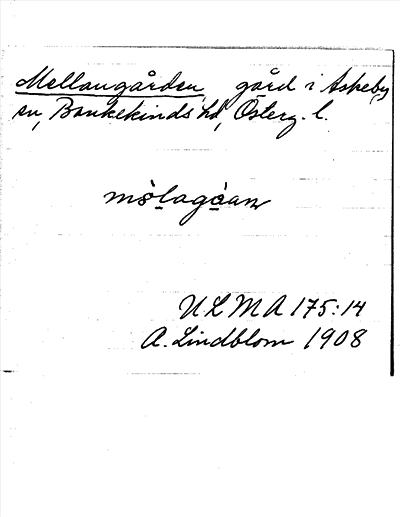 Mellangården, gård i Askeby
sn, Bankekinds hd, Österg. l.
mòlagòan
ULMA 175:14
A. Lindblom 1908